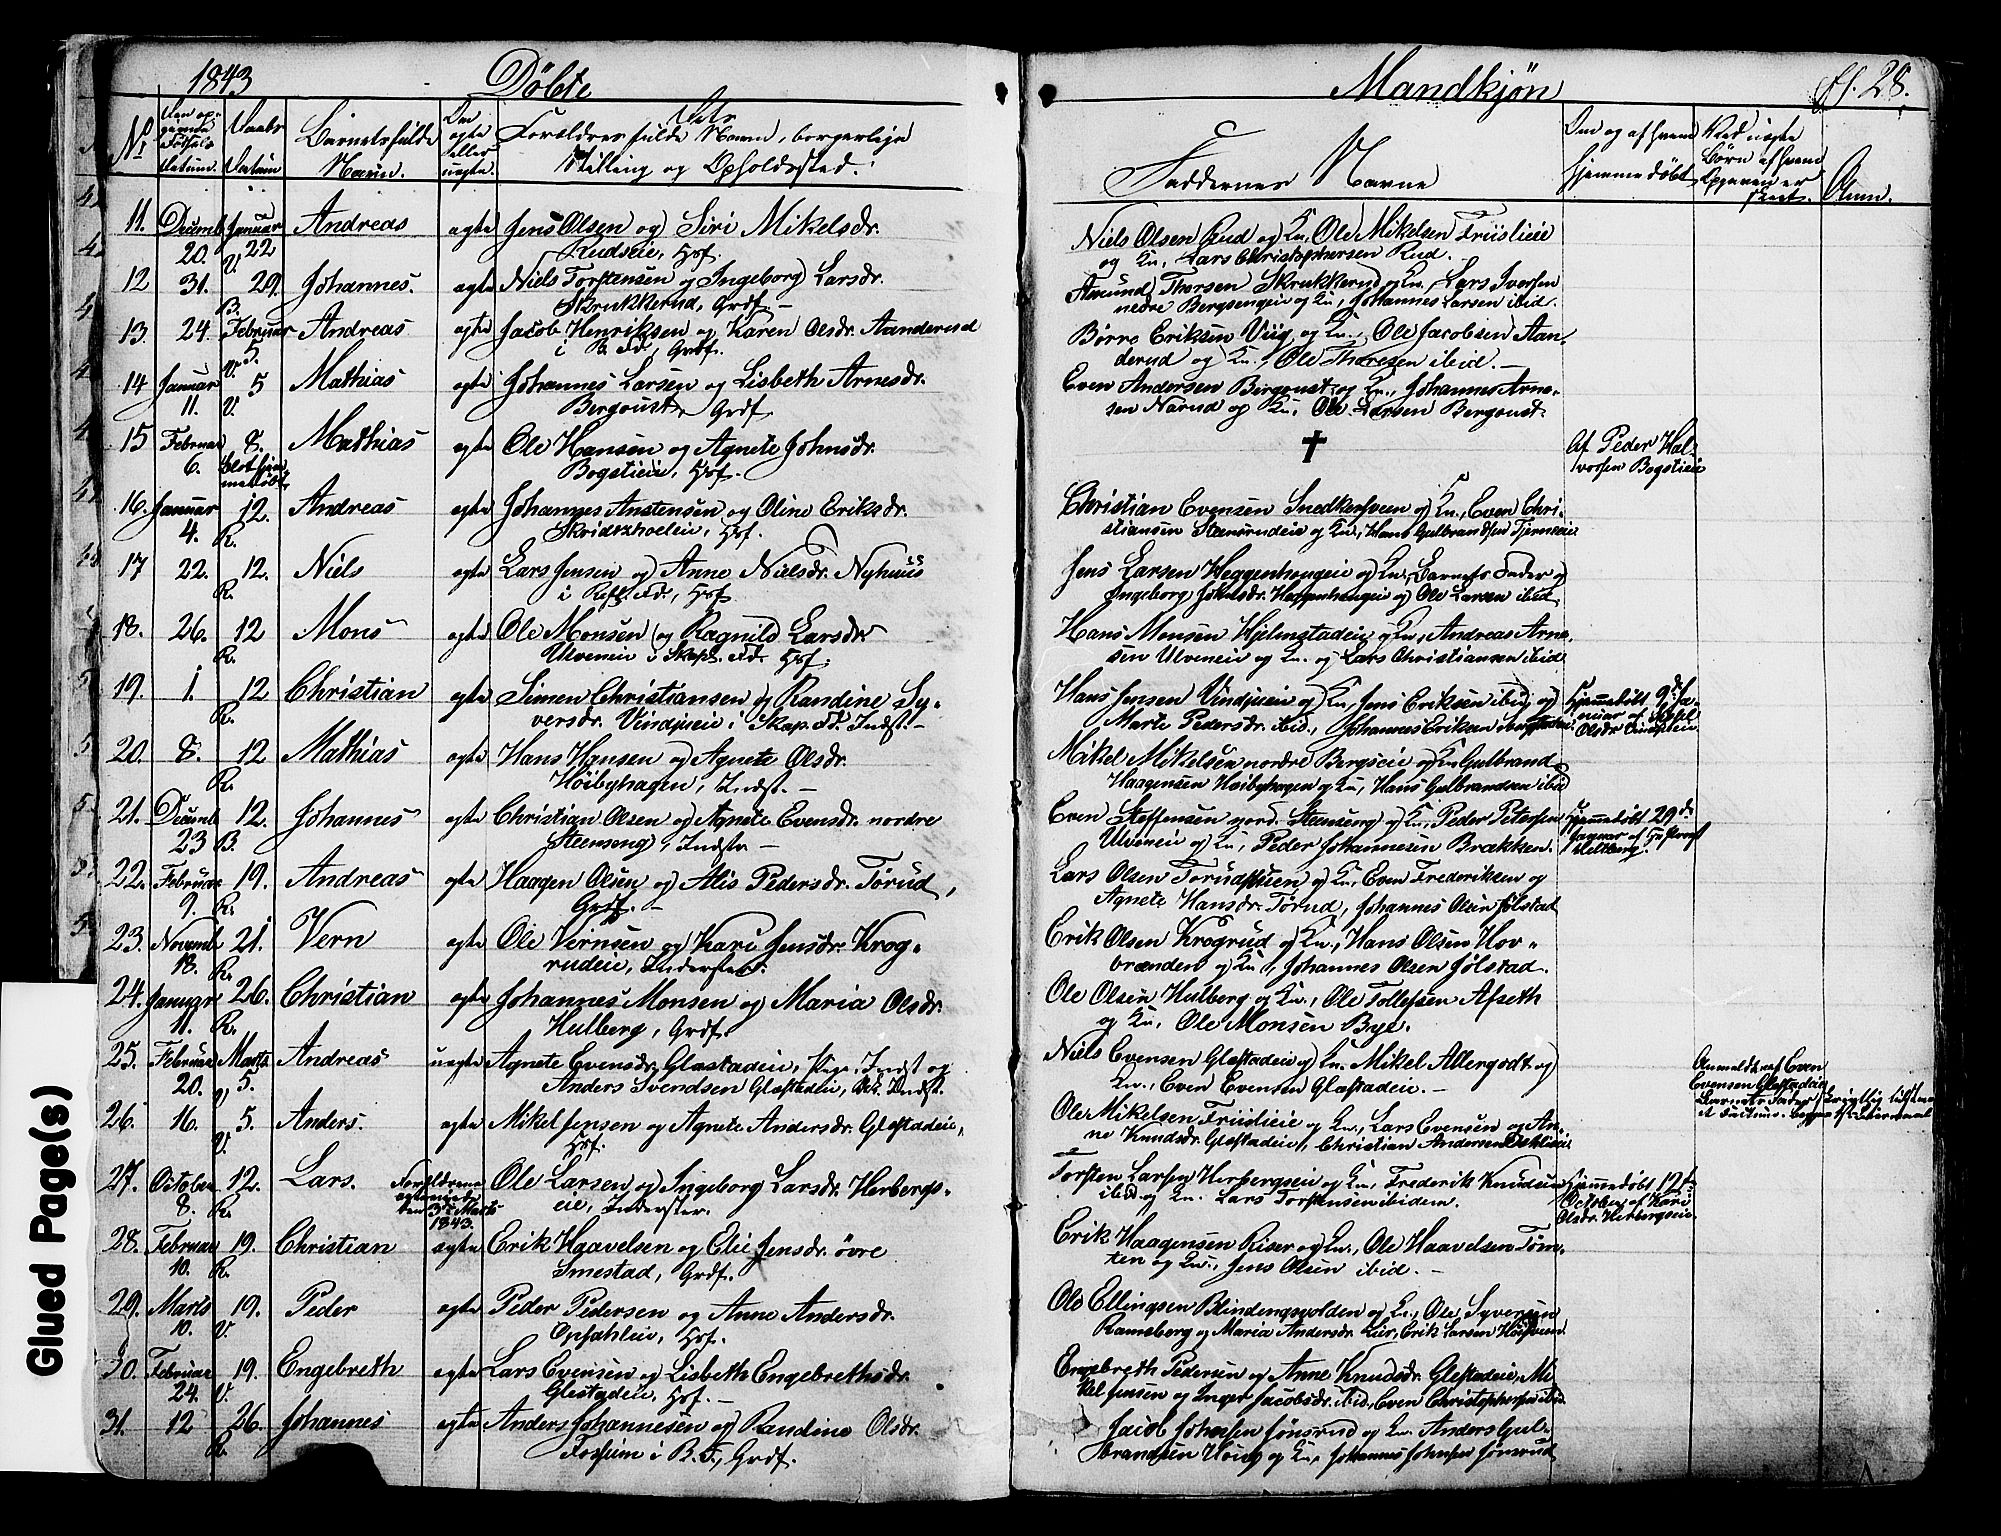 1843 Döbte
Mandkjön
fl. 28.
No
Datum.
Daabs Datum
Barnets fulde Navn.
Om ægte eller uægte.
Forældres fulde Navn, borgerlige Stilling og Opholdssted.
Faddernes Navne
Om og af hvem hjemmedöbt
Ved uægte Börn af hvem Opgaven er skeet.
Anm.
11. Decemb 20. Januar 22 V. Andreas ægte Jens Olsen og Siri Mikelsdr.
Rudseie, Hsf.
Niels Olsen Rud og Kn, Ole Mikelsen Friislieie
og Kn, Lars Christophersen Rud.
12 31. 29. B. Johannes. ægte Niels Torstensen og Ingeborg Larsdr.
Skrukkerud, Grdf. —
Amund Thorsen Skrukkerud og Kn, Lars Iversen
nedre Bergsengeie og Kn, Johannes Larsen ibid.
13. 24. Februar 5. V. Andreas ægte Jacob Henriksen og Karen Olsdr. Aanderud
i R. Fd, Grdf.
Börre Eriksen Viig og Kn., Ole Jacobsen Aan-
derud og Kn., Ole Thoresen ibid. —
14 Januar 11. 5 V. Mathias ægte Johannes Larsen og Lisbeth Arnesdr.
Bergoust, Grdf.
Even Andersen Bergoust og Kn., Johannes Arne-
sen Narud og Kn, Ole Larsen Bergoust.
15 Februar 6. 8. Mathias ægte Ole Hansen og Agnete Johnsdr.
Bogstieie, Hsf.
✝
Af Peder Hal-
vorsen Bogstieie
16. Januar 4. 12. R. Andreas ægte Johannes Anstensen og Oline Eriksdr.
Hsf.
Christian Evensen Snedkersveen og Kn., Even Chri-
stiansen Steensrudeie og Kn, Hans Gulbrandsen Tjerneie
17 22. 12. R. Niels ægte Lars Jensen og Anne Nielsdr. Nyhuus
Hsf
Jens Larsen Heggenhougeie og Kn., Barnets Fader og
Ingeborg Heggenhougeie og Ole Larsen ibid
18. 26. 12 R. Mons ægte Ole Monsen og Ragnild Larsdr
Ulveneie i Skap. Fd. Hsf.
Hans Monsen Hjelmstadeie og Kn., Andreas Arne-
sen Ulveneie og Kn. og Lars Christiansen ibid
19. 1. 12 R. Christian ægte Simen Christiansen og Randine Sy-
versdr. Vindjueie i Skap. Fd. Indst. —
Hans Jensen Vindjueie og Kn, Jens Eriksen ibid og
Marte Pedersdr. ibid., Johannes Eriksen
Hjemmedöbt 9d. Ja-
nuar af
Olsdr
20. 8. 12 R. Mathias ægte Hans Hansen og Agnete Olsdr.
Höibyhagen, Indst. —
Mikel Mikelsen nordre Bergseie og Kn Gulbrand
Haagensen Höibyhagen og Kn, Hans Gulbrandsen ibid
21. Decemb 23 12. B. Johannes ægte Christian Olsen og Agnete Evensdr. nordre
Steenseng, Indstr —
Even Steffensen nord. Steenseng og Kn, Peder Petersen
Ulveneie og Kn, Peder Johannesen Brækken.
Hjemmedöbt 29d.
22. Februar 9. 19. R. Andreas ægte Haagen Olsen og Alis Pedersdr. Törud,
Grdf. —
Lars Olsen Törudstuen og Kn, Even Frederiksen og
Agnete Hansdr. Törud, Johannes Olsen Jölstad
23. Novemb 18. 21. R. Vern ægte Ole Vernsen og Kari Jensdr. Krog-
rudeie, Inderster.
Erik Olsen Krogrud og Kn., Hans Olsen Hov-
brænden og Kn, Johannes Olsen Jölstad.
24. Januar 11. 26. R. Christian ægte Johannes Monsen og Maria Olsdr.
Hulberg, Grdf.
Ole Olsen Hulberg og Kn., Ole Tollefsen Afseth
og Kn, Ole Monsen Bye.
25. Februar 20. Marts 5. V Andreas uægte Agnete Evensdr. Glæstadeie, Pige, Indst og
Anders Svendsen Glæstadeie, Indst.
Niels Evensen Glæstadeie og Kn. Mikel Allergodt og
Kn., Even Evensen Glæstadeie. —
Anmeldt af Even
Evensen Glæstadeie
26. 16. 5. V. Anders. ægte Mikel Jensen og Agnete Andersdr. Glæstadeie,
Hsf.
Ole Mikelsen Friislieie og Kn., Lars Evensen og An-
ne Knudsdr. Glæstadeie, Christian Andersen Dehlieie
27. October 8. 12. R. Lars. Forældrene
ægteviede
den 3d. Marts
1843.
Ole Larsen og Ingeborg Larsdr. Herbergs-
eie, Inderster.
Torsten Larsen Herbergseie og Kn, Frederik Knudsen
ibid og Kn. Lars Torstensen ibidem.
Hjemmedöbt 12t
October af Kari
Olsdr. Herbergseie
28. Februar 10. 19. R. Christian ægte Erik Haavelsen og Elie Jensdr. övre
Smestad, Grdf.
Erik Haagensen Riser og Kn., Ole Haavelsen Töm-
ten og Kn., Jens Olsen ibid. —
29. Marts 10. 19. V. Peder ægte Peder Pedersen og Anne Andersdr.
Opsahleie, Hsf.
Ole Ellingsen Blindingsvolden og Kn., Ole Syversen
Ramsberg og Maria Andersdr. Lier, Erik Larsen
30. Februar 24. 19. V. Engebreth ægte Lars Evensen og Lisbeth Engebrethsdr.
Glæstadeie, Hsf. —
Engebreth Pedersen og Anne Knudsdr. Glæstadeie, Mi-
kel Jensen og Inger Jacobsdr. ibid, Even Christophersen ibid
31. 12 26. R. Johannes ægte Anders Johannesen og Randine Olsdr.
Fossum i B. F., Grdf.
Jacob Johnsen Jönsrud og Kn. Anders Gul-
brandsen Höieg og Kn, Johannes Johnsen Jönsrud
Glued Page(s)